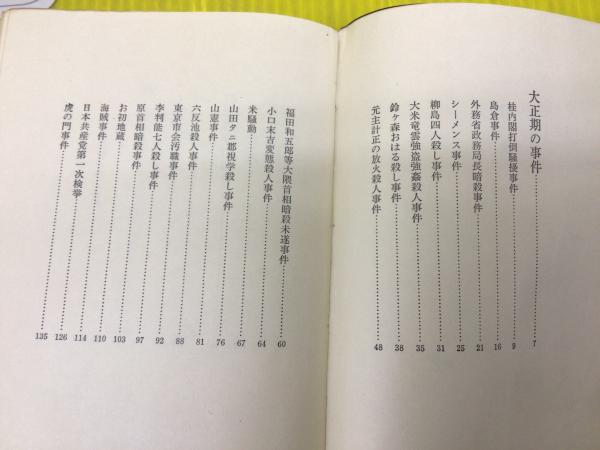 大正期の事件……7
桂内閣打倒騒擾事件……9
島倉事件……16
外務省政務局長暗殺事件……21
シーメンス事件……25
柳島四人殺し事件……31
大米竜雲強盗強姦殺人事件……35
鈴ヶ森おはる殺し事件……38
元主計正の放火殺人事件……48
福田和五郎等大隈首相暗殺未遂事件……60
小口末吉変態殺人事件……64
米騒動……67
山田タニ郡視学殺し事件……76
山憲事件……81
六反池殺人事件……88
東京市会汚職事件……92
李判能七人殺し事件……97
原首相暗殺事件……103
お初地蔵……110
海賊事件……114
日本共産党第一次検挙……126
虎の門事件……135